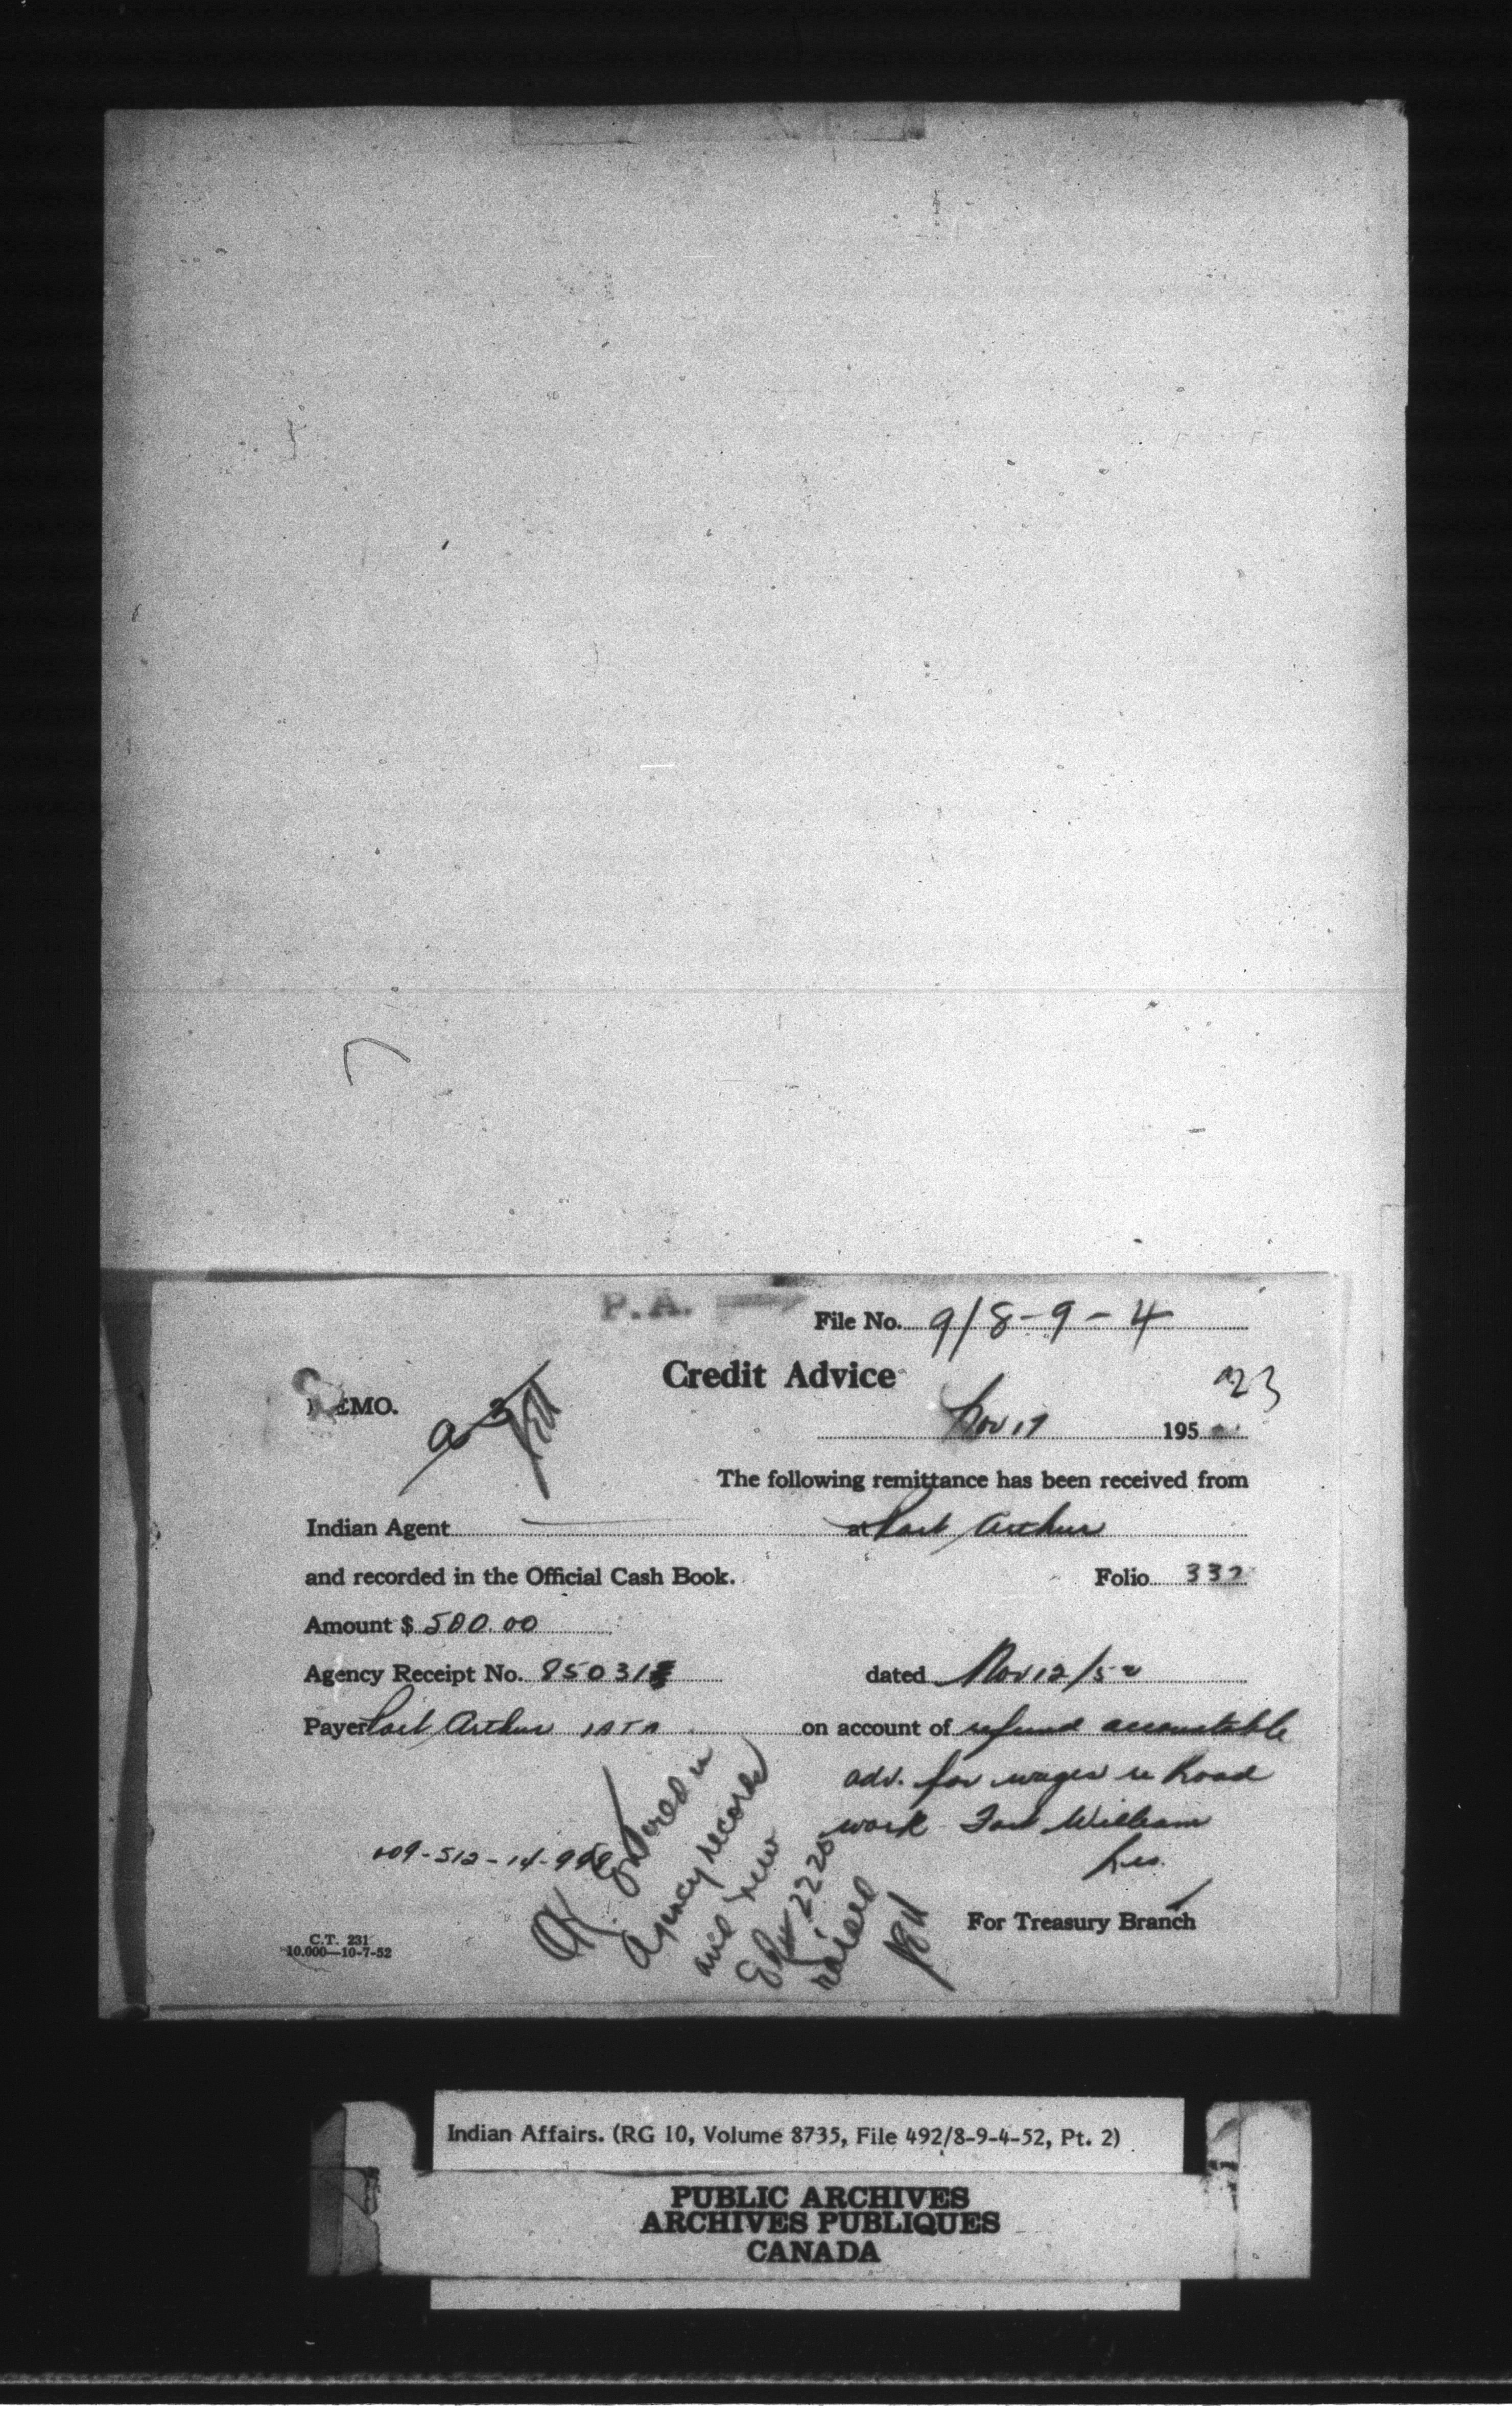 P.A.
File No. 9/8-9-4
Credit Advice
23
MEMO.
Nov 17 195
The following remittance has been received from
Indian Agent at Port Arthur
and recorded in the Official Cash Book. Folio 332
Amount $ 500.00
Agency Receipt No. 85031 dated Nov 12/52
Payer Port Arthur IATA on account of refund accountable
adv. for wages re Road
work Fort William
Res.
409-512-14-999
OK Entered in
Agency records
and new
2220
raised
For Treasury Branch
C.T. 231
10,000—10-7-52
Indian Affairs. (RG 10, Volume 8735, File 492/8-9-4-52, Pt. 2)
PUBLIC ARCHIVES
ARCHIVES PUBLIQUES
CANADA